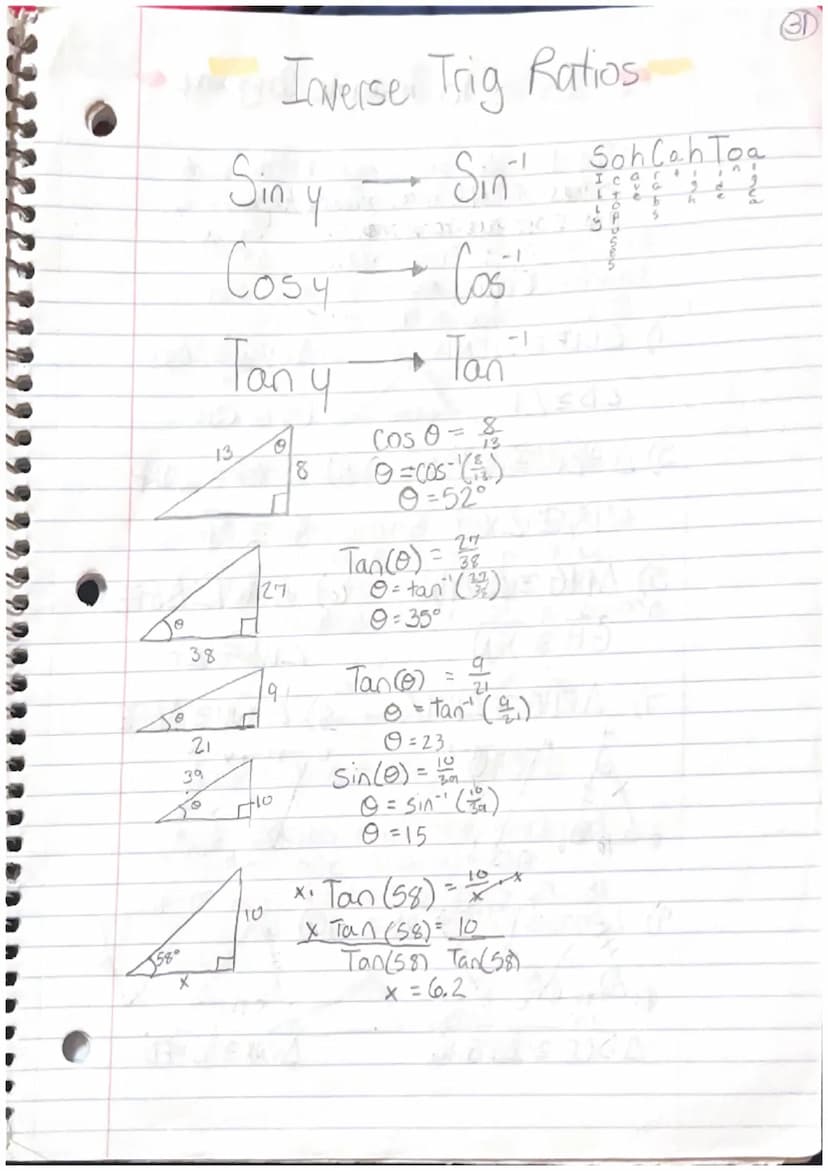 31
Inverse Trig Ratios
Sin y → Sin⁻¹
SohCahToa
Cos y → Cos⁻¹
Tan y → Tan⁻¹
13 θ 8
cos θ = 8/13
θ = cos⁻¹(8/13)
θ = 52°
27 θ 38
Tan(θ) = 27/38
θ = tan⁻¹(27/38)
θ = 35°
9 θ 21
Tan(θ) = 9/21
θ = tan⁻¹(9/21)
θ = 23
39 θ 10
sin(θ) = 10/39
θ = sin⁻¹(10/39)
θ = 15
10 58° x
x · Tan(58) = 10/x · x
x Tan(58) = 10
Tan(58) Tan(58)
x = 6.2